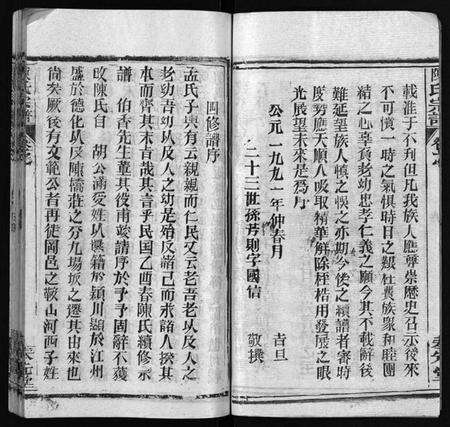 載准于不刋但凡我族人應學崇歷史召示後來
不可慎一時之氣惧時日之艱
族眾和睦團
結之心幸負老幼忠孝仁義之願今其不載餠後
難延望族人慎之悞之亦期今後之續譜者審時
度势應天順人吸取精華解除桎梏用發展之眼
光展望未來是為序
公元一九九一年仲春月
吉旦
二十二世孫
則字國信
敬撰
陳氏宗譜
四修譜序
孟氏子輿有云親親而仁民又云老吾老以及人之
老幼吾幼以及人之幼是殆反諸己而求諸人揆其
本而齊其末者哉其言乎民国乙酉春陳氏續修宗
譜
伯香先生董其役甫竣請序於予予固辭不獲
攷陳氏自
胡公滿受姓以
籍於颍川顯於江州
盛於德化以及陳
莊之分九場
之遷其由來也
尚矣厥後有文範公者再徙岡邑之
山河西子姓